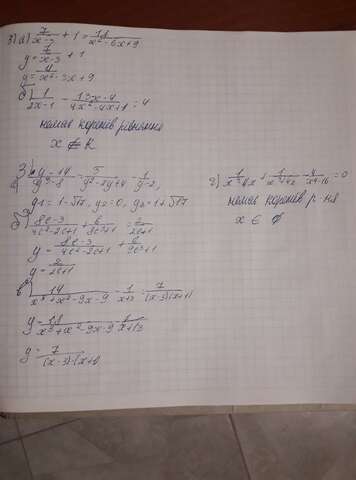 3) а) 7/x-3 + 1 = 18/x²-6x+9
y = 7/x-3 + 1
y = 4/x²-3x+9
б) 1/2x-1 - 13x-4/4x²-4x+1 = 4
немає коренів рівняння
x ∉ R
y-14/y³-8 5/y²-2y+4 - 1/y-2,
y1 = 1-√17, y2 = 0, y3 = 1+√17
б) 8c-3/4c²-2c+1 + 6/8c³+1 2/2c+1
y = 8c-3/4c²-2c+1 + 6/9c³+1
y = 2/2c+1
в) 14/x³+x²-9x-9 - 1/x+3 = 7/(x-3)(x+1)
y = 18/x³+x²-9x-9 1/x+3
y = 7/(x-3)·(x+1)
немає коренів р-ня
x ∈ ∅